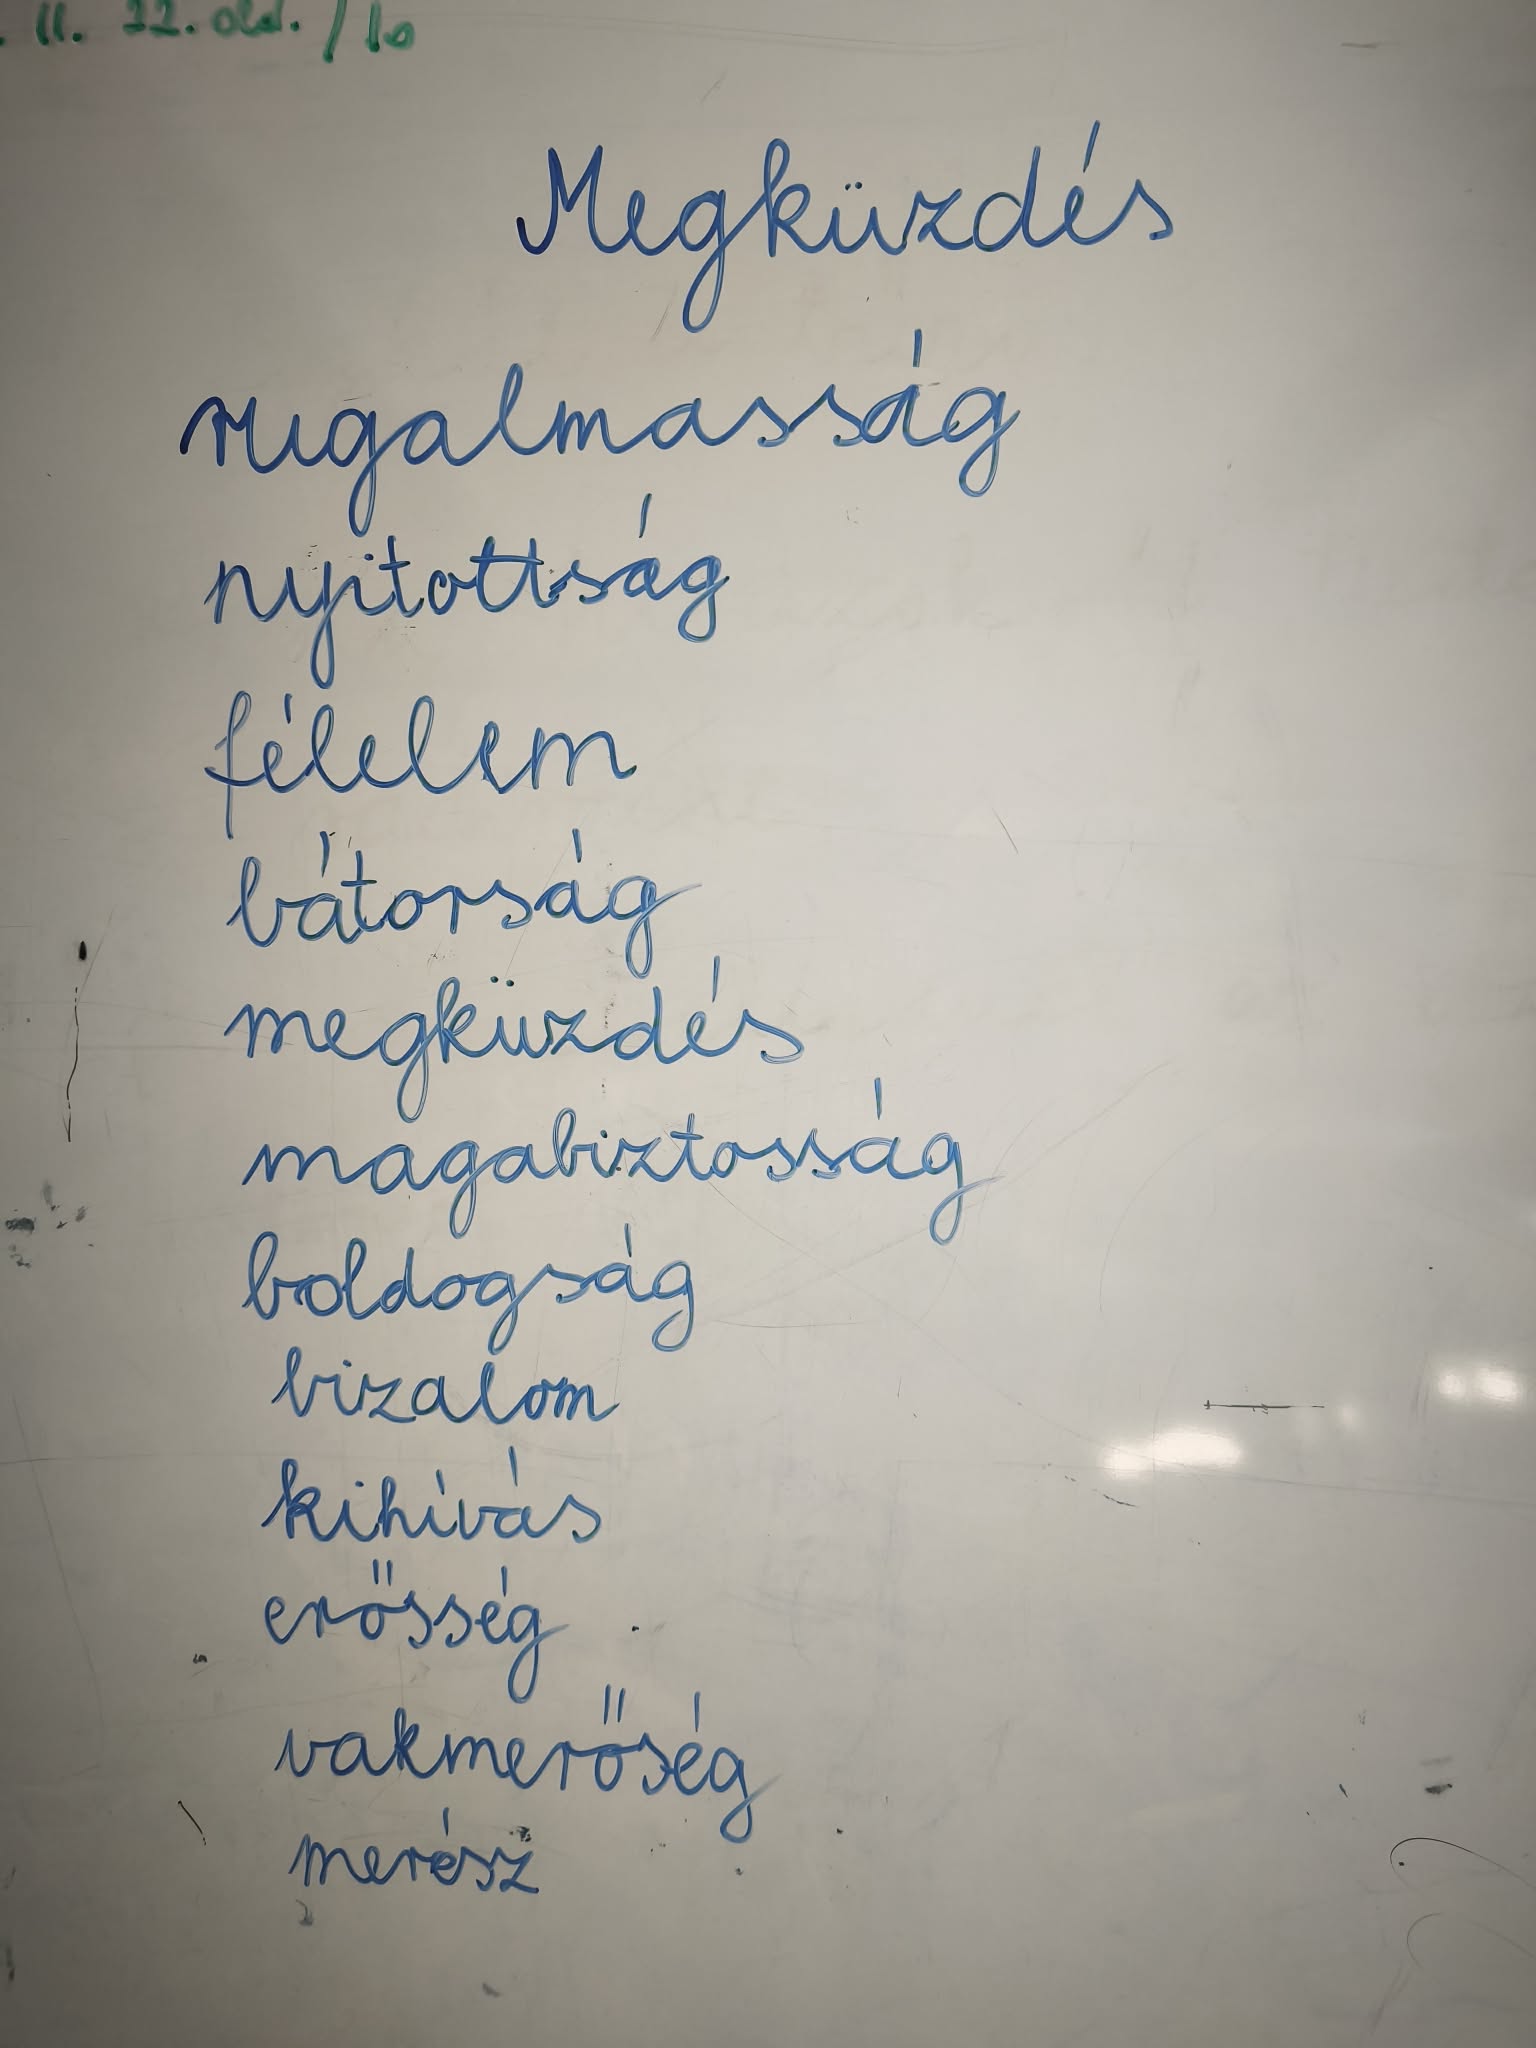 . II. 22. old. /
Megküzdés
rugalmasság
nyitottság
félelem
bátorság
megküzdés
magabiztosság
boldogság
bizalom
kihívás
erősség
vakmerőség
merész